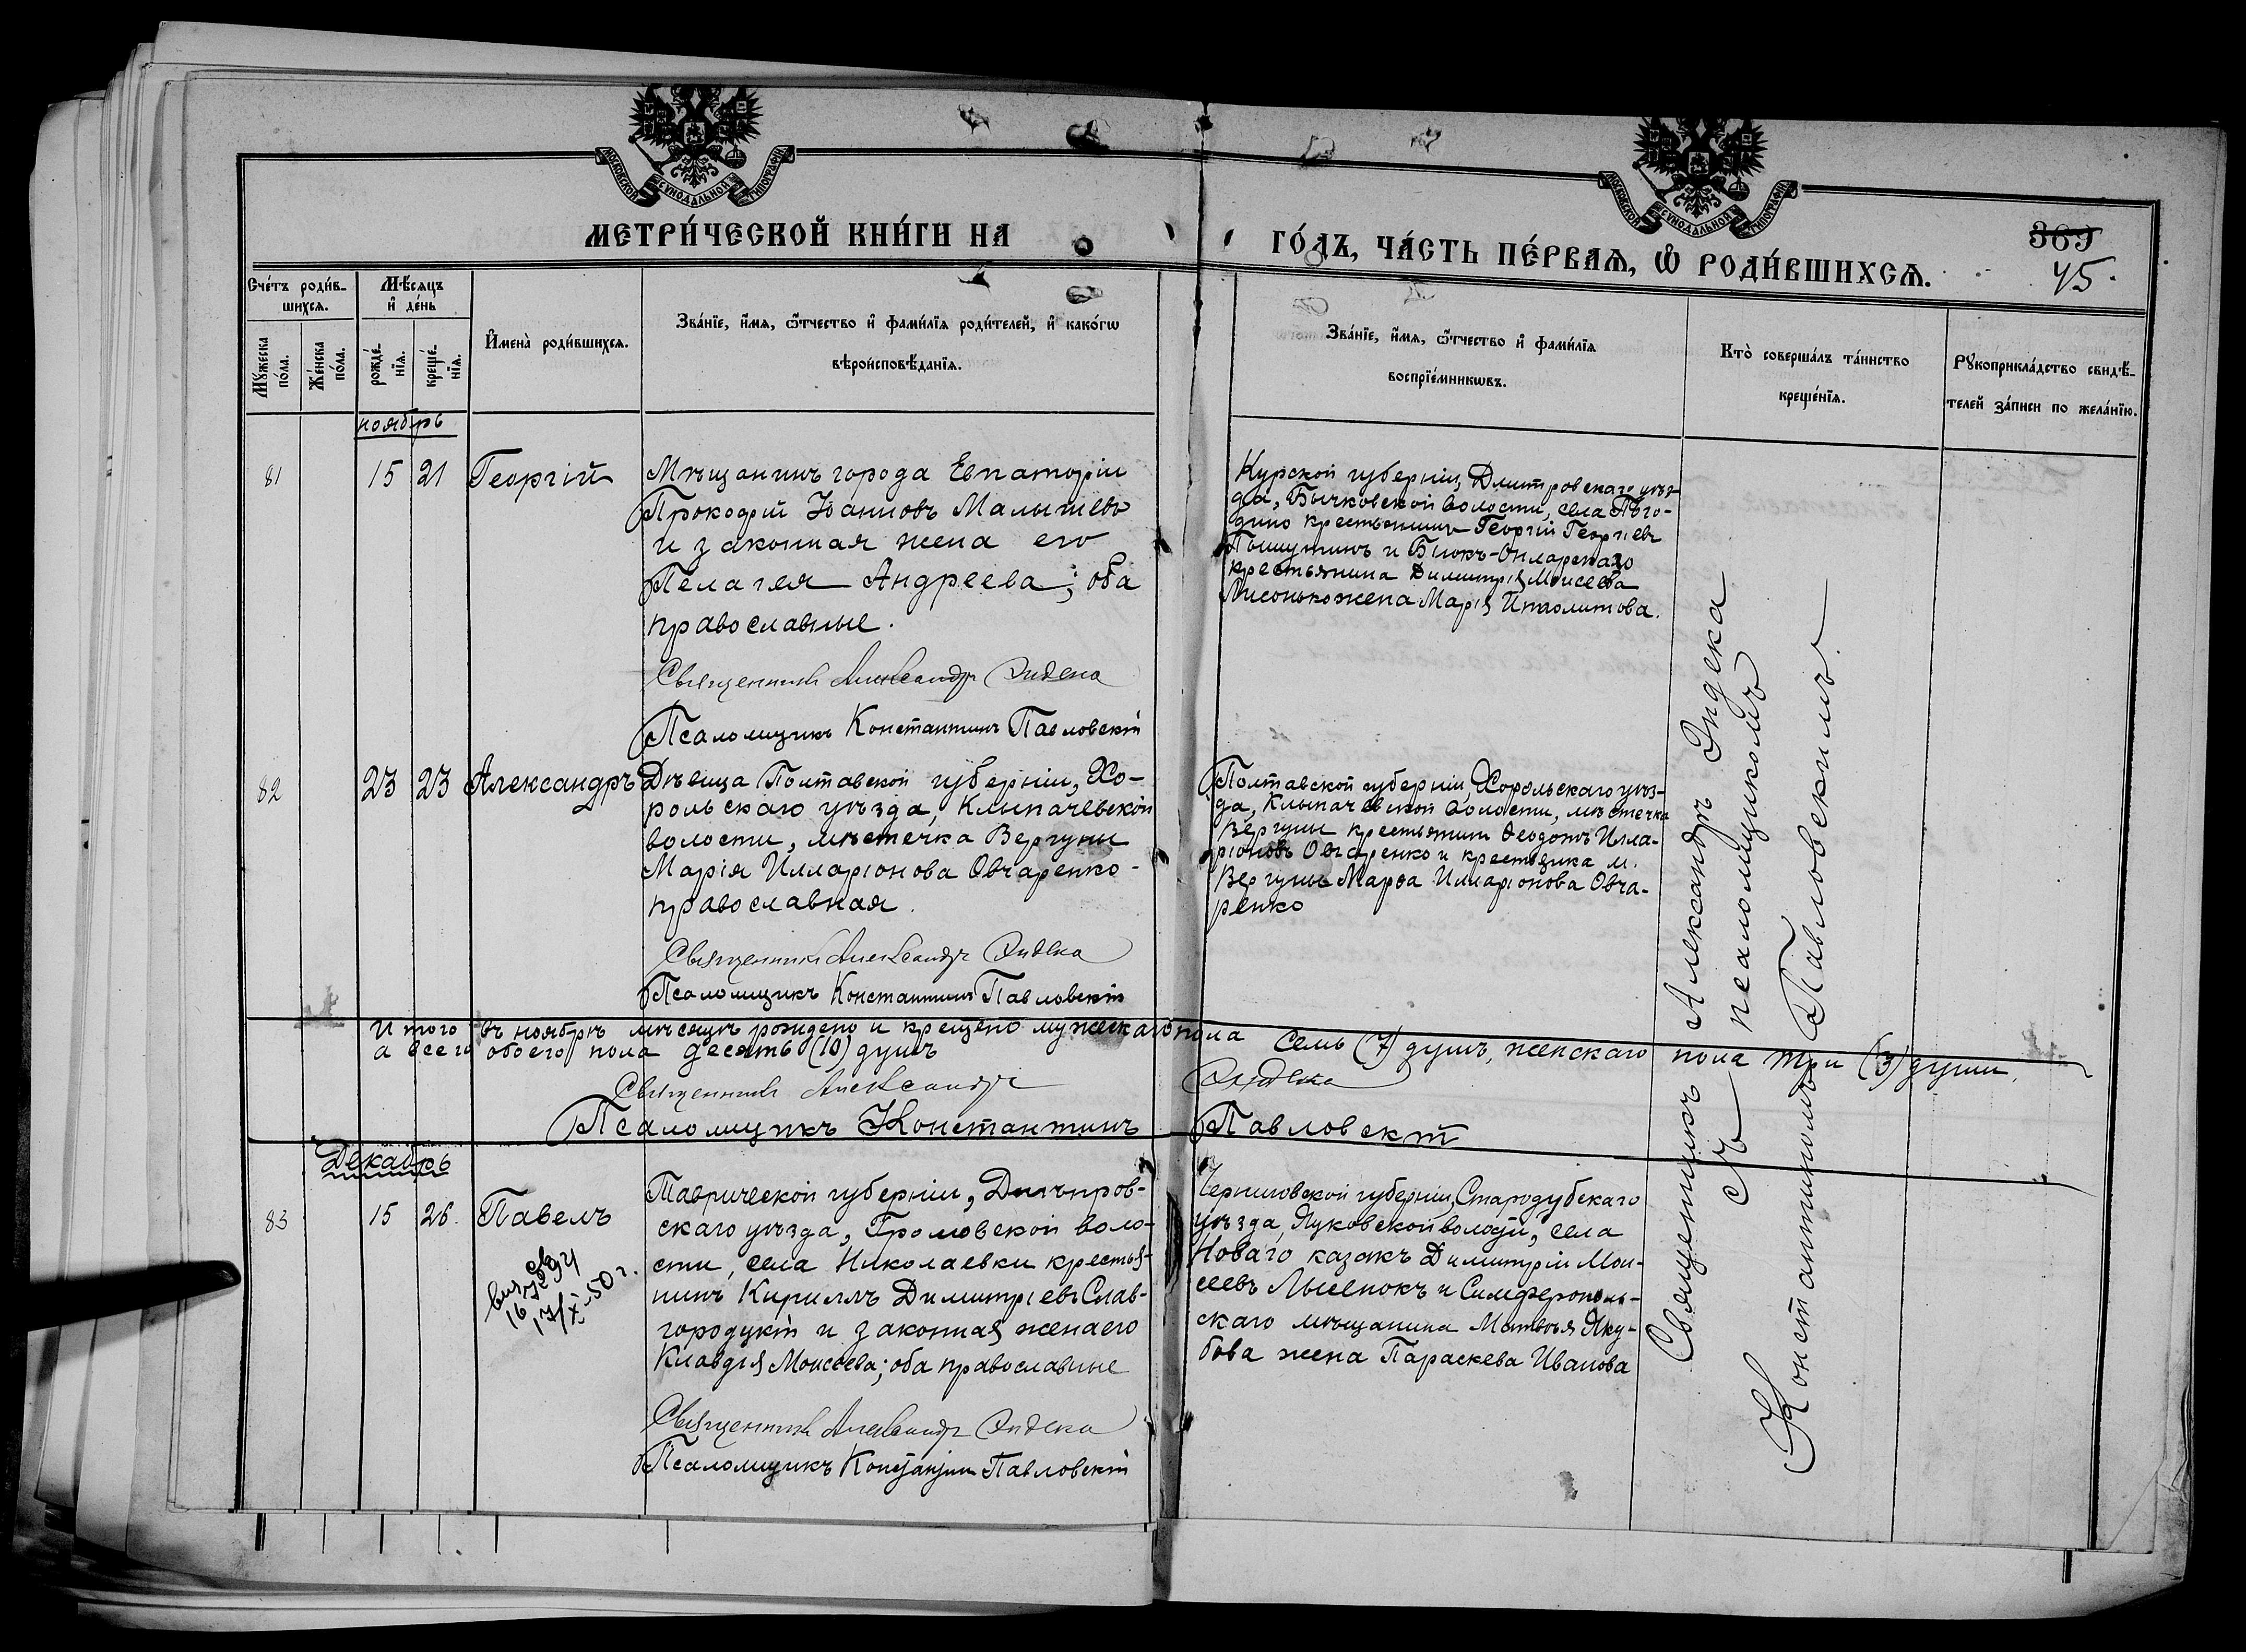 МОСКОВСКОЙ СѴНОДАЛЬНОЙ ТИПОГРАФІИ
МОСКОВСКОЙ СѴНОДАЛЬНОЙ ТИПОГРАФІИ
МЕТРИ́ЧЕСКОЙ КНИ́ГИ НА
ГО́ДЪ, ЧА́СТЬ ПЕ́РВАѦ, Ѡ҆ РОДИ́ВШИХСѦ.
369
45.
Сче́тъ роди́в-
шихсѧ.
Мꙋ́жеска
по́ла.
Же́нска
по́ла.
Мѣ́сѧцъ
и҆ де́нь
рожде́-
нїѧ.
креще́-
нїѧ.
И҆мена̀ роди́вшихсѧ.
Зва́нїе, и҆́мѧ, ѻ҆́тчество и҆ фами́лїѧ роди́телей, и҆ како́гѡ
вѣроисповѣ́данїѧ.
Зва́нїе, и҆́мѧ, ѻ҆́тчество и҆ фами́лїѧ
воспрїе́мникѡвъ.
Кто̀ соверша́лъ та́инство
креще́нїѧ.
Рꙋкоприкла́дство свидѣ́-
телей за́писи по жела́нїю.
ноябрь
81
15 21 Георгій
Мѣщанинъ города Евпаторіи
Прокофій Іоанновъ Малышевъ
и законная жена его
Пелагея Андреева; оба
православные.
Священникъ Александръ Индека
Псаломщикъ Константинъ Павловскій
Курской губерніи, Дмитровскаго уѣз-
да, Бычковской волости, села
крестьянинъ Георгій Георгіевъ
и Біюкъ-Онларскаго
крестьянина Димитрія Моисеева
жена Марія Ипполитова.
82
23 23 Александръ
Дѣвица Полтавской губерніи, Хо-
рольскаго уѣзда, Клыпачевской
волости, мѣстечка Вергуны
Марія Илларіонова Овчаренко-
православная.
Священникъ Александръ Индека
Псаломщикъ Константинъ Павловскій
Полтавской губерніи, Хорольскаго уѣз-
да, Клыпачевской волости, мѣстечка
Вергуны крестьянинъ Ѳеодотъ Илла-
ріоновъ Овчаренко и крестьянка м.
Вергуны Марѳа Илларіонова Овча-
ренко
Итого въ ноябрѣ мѣсяцѣ рождено и крещено мужескаго пола семь (7) душъ, женскаго пола три (3) души,
а всего обоего пола десять (10) душъ
Священникъ Александръ Индека
Псаломщикъ Константинъ Павловскій
Декабрь
83
15 26. Павелъ
Таврической губерніи, Днѣпров-
скаго уѣзда, Громовской воло-
сти, села Николаевки крестья-
нинъ Кириллъ Димитріевъ Слав-
городскій и законная жена его
Клавдія Моисеева; оба православные
Священникъ Александръ Индека
Псаломщикъ Константинъ Павловскій
17/X-50 г.
Черниговской губерніи, Стародубскаго
уѣзда, волости, села
Новаго казакъ Димитрій Мои-
сеевъ Лысенокъ и Симферополь-
скаго мѣщанина Матвѣя Яку-
бова жена Параскева Иванова
Священникъ Александръ Индека
съ псаломщикомъ
Константиномъ Павловскимъ.